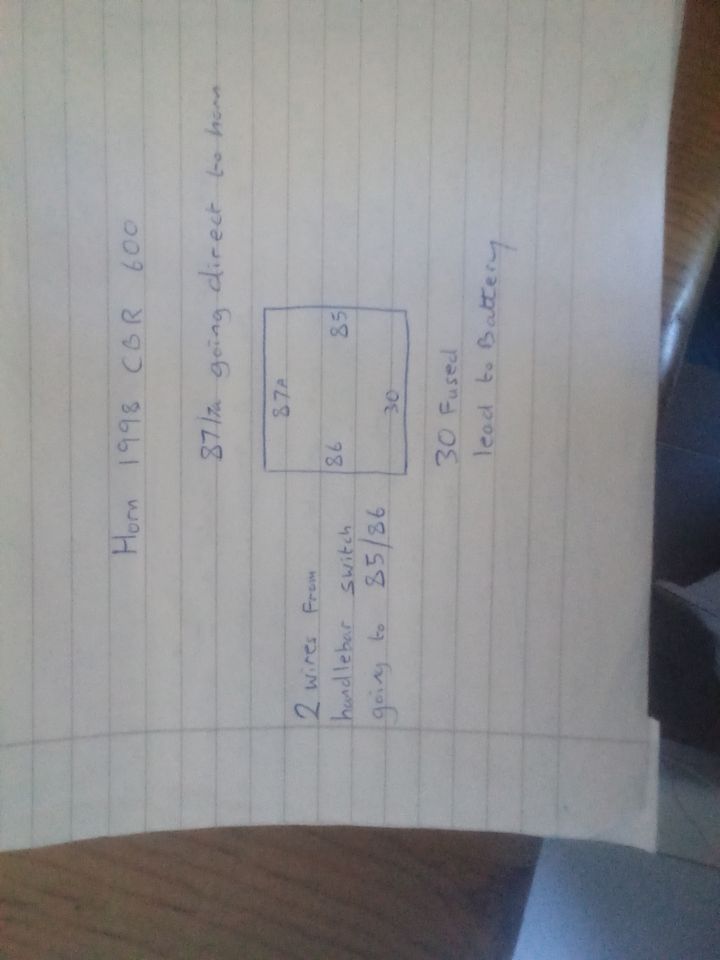 Horn 1998 CBR 600
87/7a going direct to horn
87A
86
85
30
2 wires from
handlebar switch
going to 85/86
30 Fused
lead to Battery